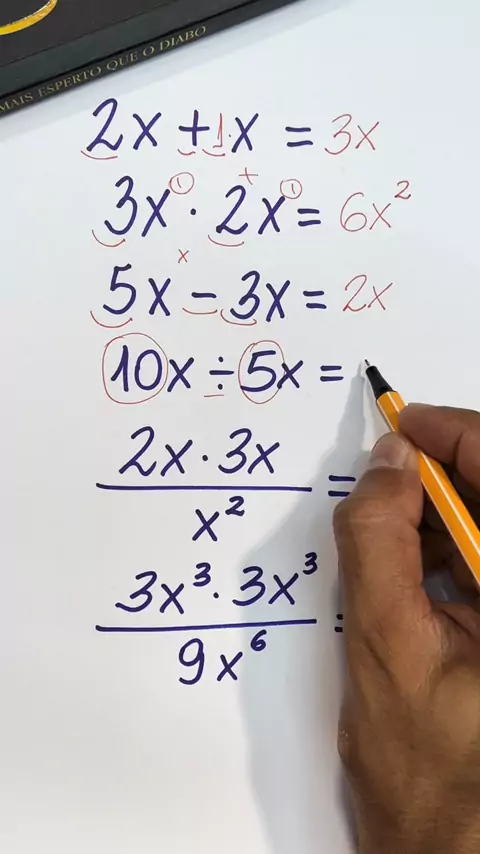 MAIS ESPERTO QUE O DIABO
2x + 1·x = 3x
3x① · 2x① = 6x²
5x − 3x = 2x
10x ÷ 5x =
2x · 3x
x²
=
3x³ · 3x³
9x⁶
=